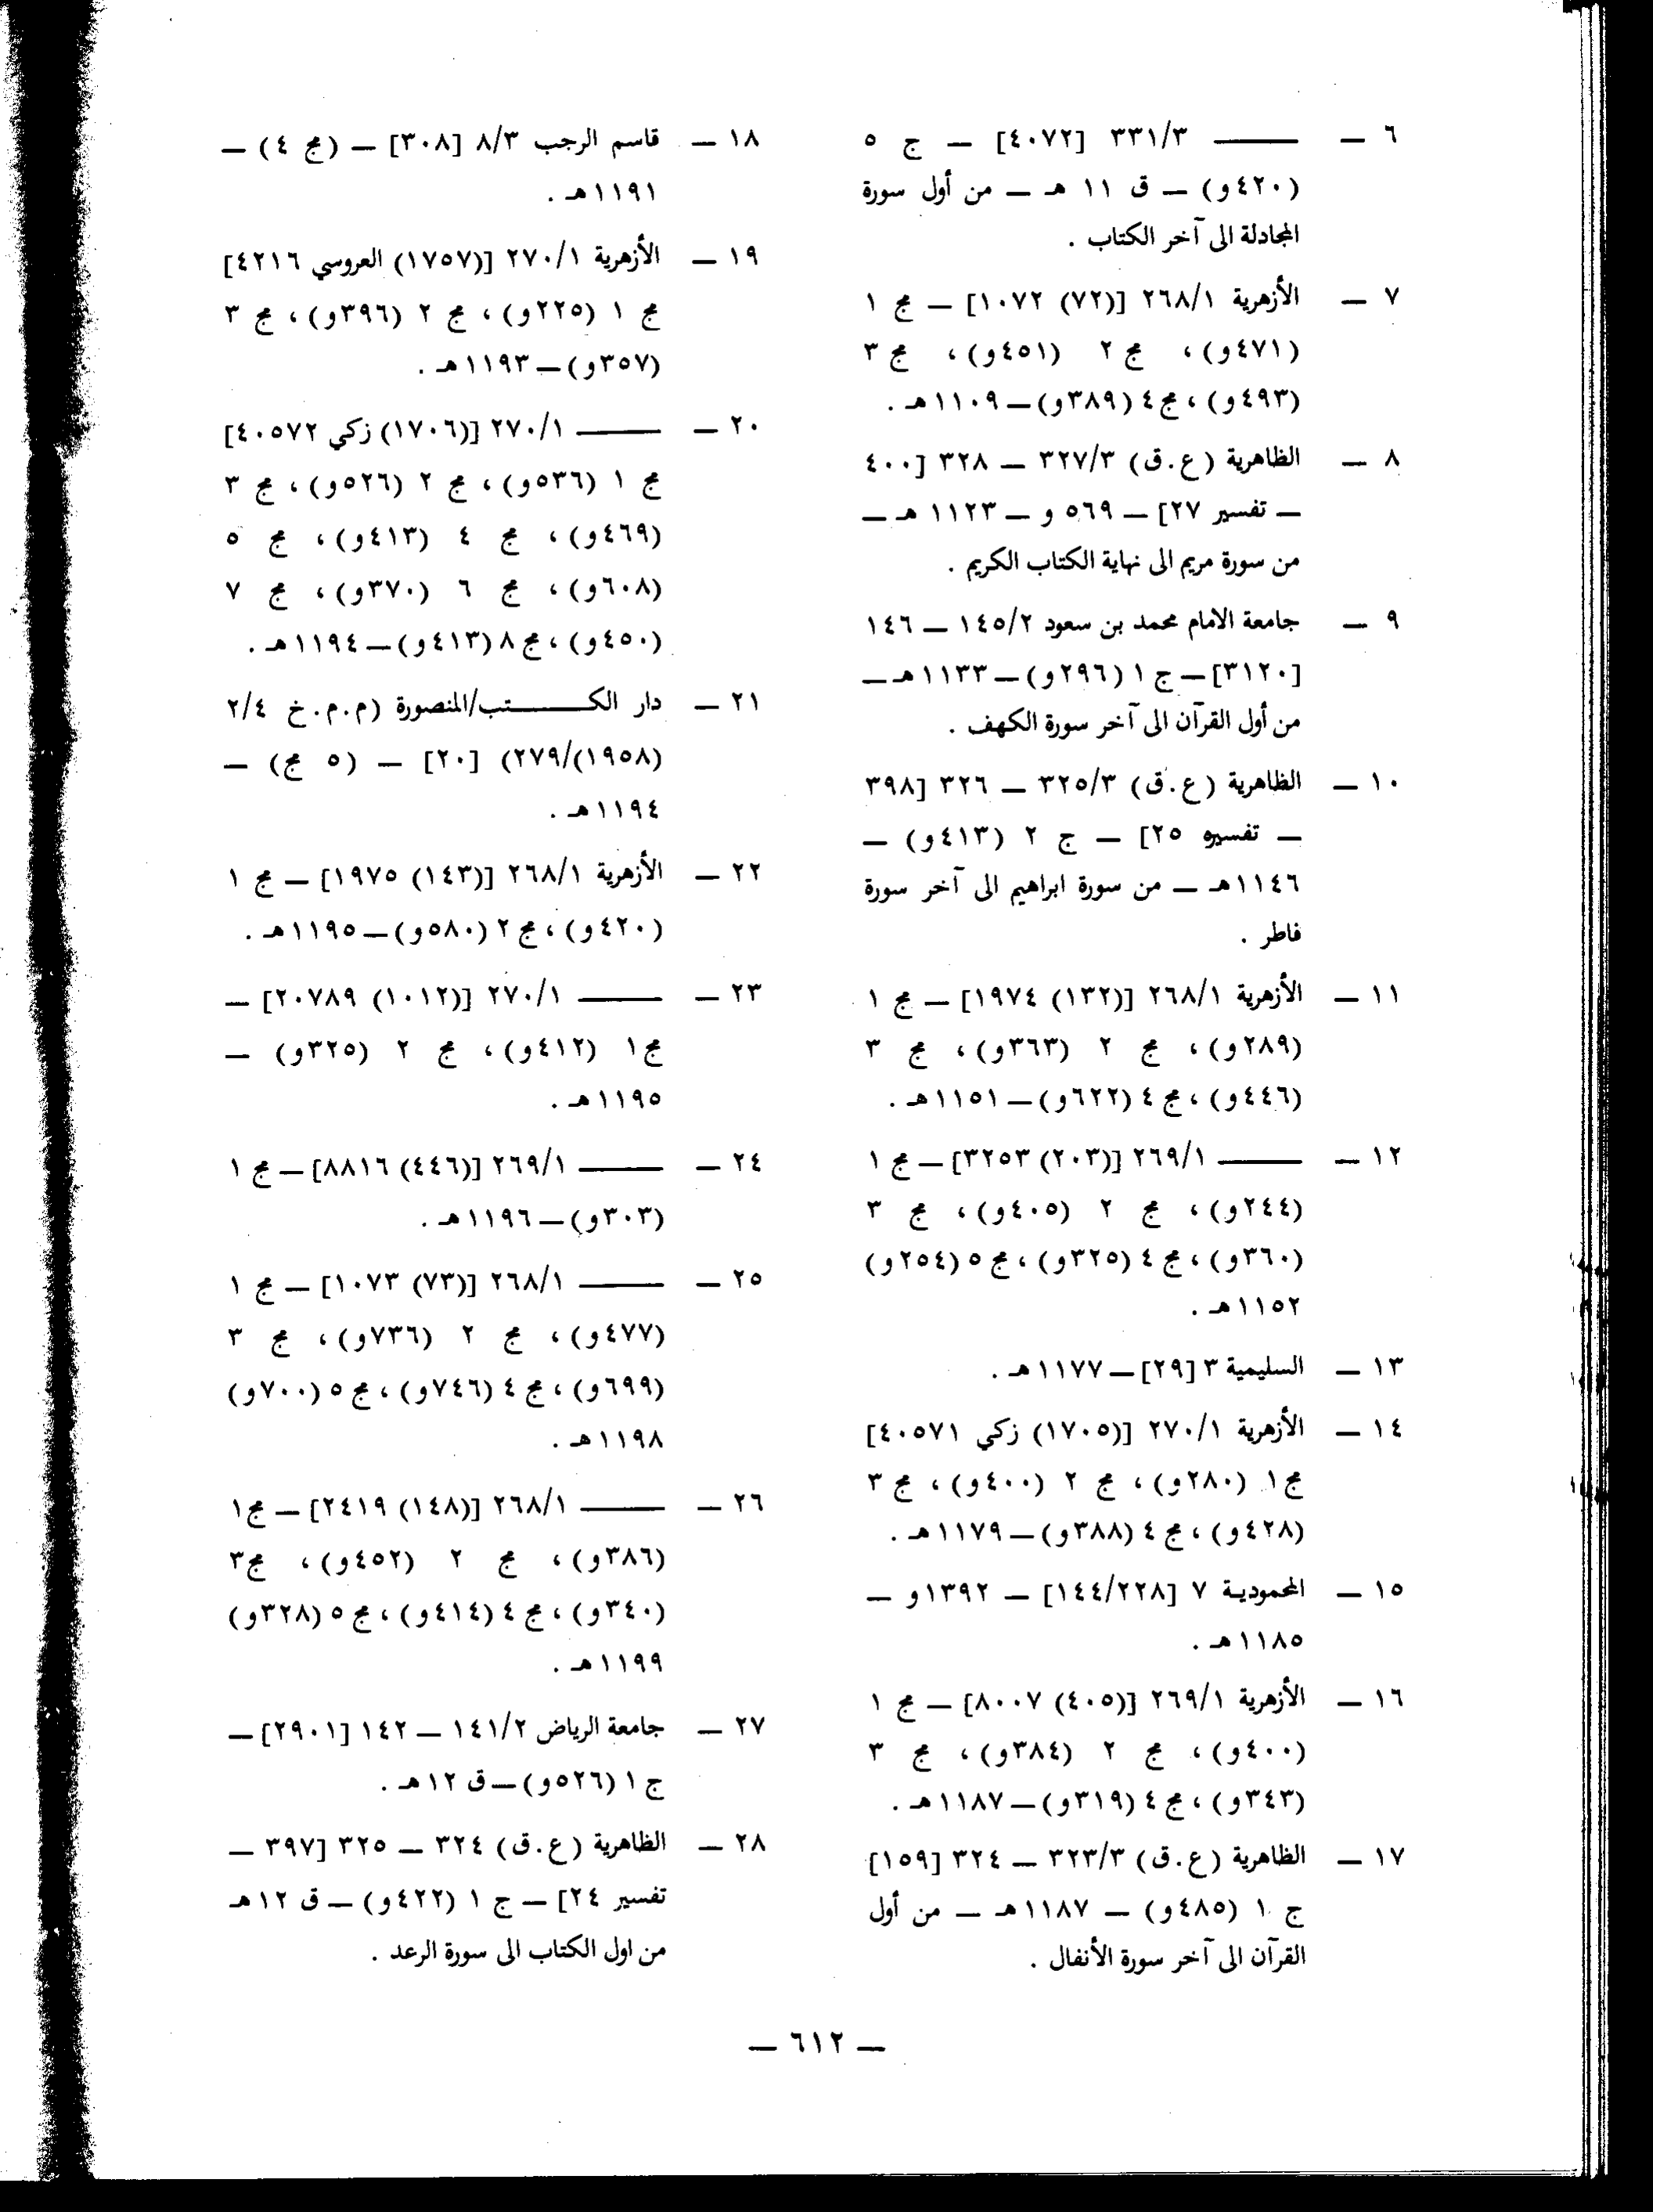 ٦ — ——— ٣٣١/٣ [٤٠٧٢] — ج ٥
(٤٢٠و) — ق ١١ هـ — من أول سورة
المجادلة الى آخر الكتاب .
٧ — الأزهرية ٢٦٨/١ [(٧٢) ١٠٧٢] — مج ١
(٤٧١و)، مج ٢ (٤٥١و)، مج ٣
(٤٩٣و)، مج ٤ (٣٨٩و) — ١١٠٩هـ .
٨ — الظاهرية (ع.ق) ٣٢٧/٣ — ٣٢٨ [٤٠٠
— تفسير ٢٧] — ٥٦٩ و — ١١٢٣ هـ —
من سورة مريم الى نهاية الكتاب الكريم .
٩ — جامعة الامام محمد بن سعود ١٤٥/٢ — ١٤٦
[٣١٢٠] — ج ١ (٢٩٦و) — ١١٣٣هـ —
من أول القرآن الى آخر سورة الكهف .
١٠ — الظاهرية (ع.ق) ٣٢٥/٣ — ٣٢٦ [٣٩٨
— تفسيره ٢٥] — ج ٢ (٤١٣و) —
١١٤٦هـ — من سورة ابراهيم الى آخر سورة
فاطر .
١١ — الأزهرية ٢٦٨/١ [(١٣٢) ١٩٧٤] — مج ١
(٢٨٩و)، مج ٢ (٣٦٣و)، مج ٣
(٤٤٦و)، مج ٤ (٦٢٢و) — ١١٥١هـ .
١٢ — ——— ٢٦٩/١ [(٢٠٣) ٣٢٥٣] — مج ١
(٢٤٤و)، مج ٢ (٤٠٥و)، مج ٣
(٣٦٠و)، مج ٤ (٣٢٥و)، مج ٥ (٢٥٤و)
١١٥٢هـ .
١٣ — السليمية ٣ [٢٩] — ١١٧٧هـ .
١٤ — الأزهرية ٢٧٠/١ [(١٧٠٥) زكي ٤٠٥٧١]
مج ١ (٢٨٠و)، مج ٢ (٤٠٠و)، مج ٣
(٤٢٨و)، مج ٤ (٣٨٨و) — ١١٧٩هـ .
١٥ — المحمودية ٧ [١٤٤/٢٢٨] — ١٣٩٢و —
١١٨٥هـ .
١٦ — الأزهرية ٢٦٩/١ [(٤٠٥) ٨٠٠٧] — مج ١
(٤٠٠و)، مج ٢ (٣٨٤و)، مج ٣
(٣٤٣و)، مج ٤ (٣١٩و) — ١١٨٧هـ .
١٧ — الظاهرية (ع.ق) ٣٢٣/٣ — ٣٢٤ [١٥٩]
ج ١ (٤٨٥و) — ١١٨٧هـ — من أول
القرآن الى آخر سورة الأنفال .
١٨ — قاسم الرجب ٨/٣ [٣٠٨] — (مج ٤) —
١١٩١هـ .
١٩ — الأزهرية ٢٧٠/١ [(١٧٥٧) العروسي ٤٢١٦]
مج ١ (٢٢٥و)، مج ٢ (٣٩٦و)، مج ٣
(٣٥٧و) — ١١٩٣هـ .
٢٠ — ——— ٢٧٠/١ [(١٧٠٦) زكي ٤٠٥٧٢]
مج ١ (٥٣٦و)، مج ٢ (٥٢٦و)، مج ٣
(٤٦٩و)، مج ٤ (٤١٣و)، مج ٥
(٦٠٨و)، مج ٦ (٣٧٠و)، مج ٧
(٤٥٠و)، مج ٨ (٤١٣و) — ١١٩٤هـ .
٢١ — دار الكتب/المنصورة (م.م.خ ٢/٤
(١٩٥٨)/٢٧٩) [٢٠] — (٥ مج) —
١١٩٤هـ .
٢٢ — الأزهرية ٢٦٨/١ [(١٤٣) ١٩٧٥] — مج ١
(٤٢٠و)، مج ٢ (٥٨٠و) — ١١٩٥هـ .
٢٣ — ——— ٢٧٠/١ [(١٠١٢) ٢٠٧٨٩] —
مج١ (٤١٢و)، مج ٢ (٣٢٥و) —
١١٩٥هـ .
٢٤ — ——— ٢٦٩/١ [(٤٤٦) ٨٨١٦] — مج ١
(٣٠٣و) — ١١٩٦هـ .
٢٥ — ——— ٢٦٨/١ [(٧٣) ١٠٧٣] — مج ١
(٤٧٧و)، مج ٢ (٧٣٦و)، مج ٣
(٦٩٩و)، مج ٤ (٧٤٦و)، مج ٥ (٧٠٠و)
١١٩٨هـ .
٢٦ — ——— ٢٦٨/١ [(١٤٨) ٢٤١٩] — مج١
(٣٨٦و)، مج ٢ (٤٥٢و)، مج٣
(٣٤٠و)، مج ٤ (٤١٤و)، مج ٥ (٣٢٨و)
١١٩٩هـ .
٢٧ — جامعة الرياض ١٤١/٢ — ١٤٢ [٢٩٠١] —
ج ١ (٥٢٦و) — ق ١٢هـ .
٢٨ — الظاهرية (ع.ق) ٣٢٤ — ٣٢٥ [٣٩٧ —
تفسير ٢٤] — ج ١ (٤٢٢و) — ق ١٢هـ
من اول الكتاب الى سورة الرعد .
— ٦١٢ —